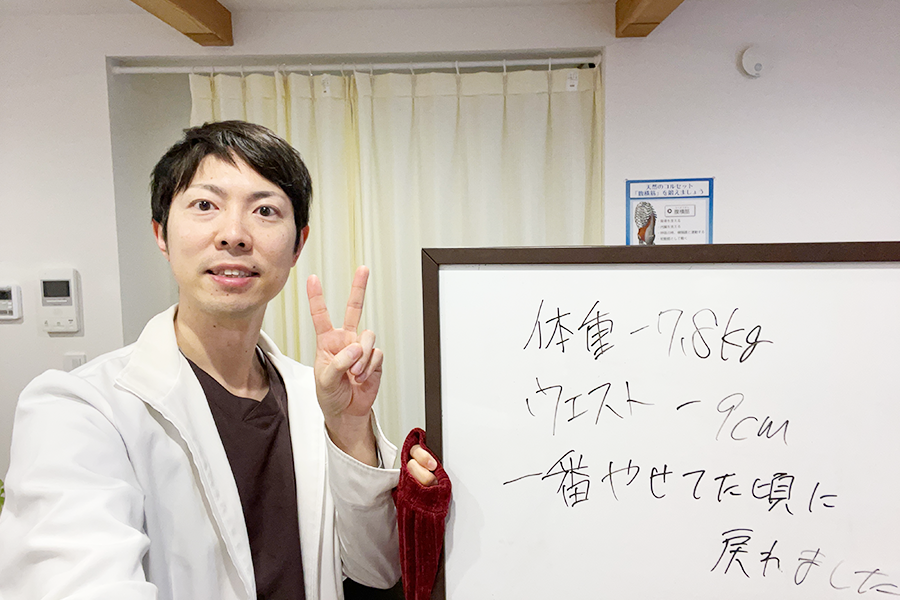 天然のコルセット
「腹横筋」を鍛えましょう
腹横筋
体重 -7.8kg
ウエスト -9cm
一番やせてた頃に
戻れました